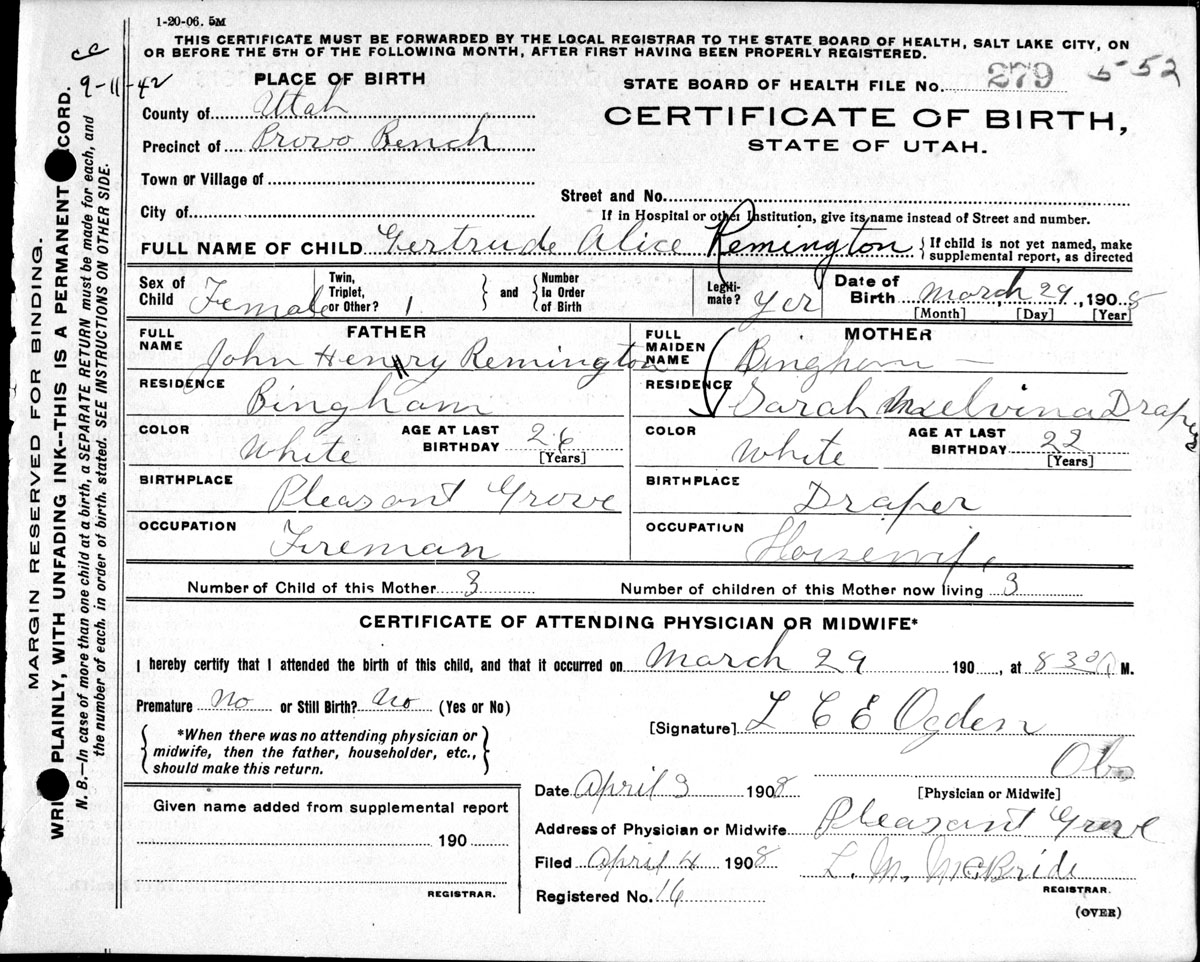 1-20-06. 5M
THIS CERTIFICATE MUST BE FORWARDED BY THE LOCAL REGISTRAR TO THE STATE BOARD OF HEALTH, SALT LAKE CITY, ON
OR BEFORE THE 5TH OF THE FOLLOWING MONTH, AFTER FIRST HAVING BEEN PROPERLY REGISTERED.
cc
9-11-42
PLACE OF BIRTH
STATE BOARD OF HEALTH FILE No. 279 5-52
County of Utah
CERTIFICATE OF BIRTH,
Precinct of Provo Bench
STATE OF UTAH.
Town or Village of
Street and No.
City of
If in Hospital or other Institution, give its name instead of Street and number.
FULL NAME OF CHILD Gertrude Alice Remington { If child is not yet named, make
supplemental report, as directed
Sex of Child Female
Twin, Triplet, or Other? 1 } and { Number In Order of Birth
Legiti-mate? yes
Date of Birth March 29, 1908
[Month] [Day] [Year]
FATHER
FULL NAME John Henry Remington
RESIDENCE Bingham
COLOR White AGE AT LAST BIRTHDAY 26 [Years]
BIRTHPLACE Pleasant Grove
OCCUPATION Fireman
MOTHER
FULL MAIDEN NAME Bingham —
RESIDENCE Sarah Melvina Draper
COLOR White AGE AT LAST BIRTHDAY 22 [Years]
BIRTHPLACE Draper
OCCUPATION Housewife
Number of Child of this Mother 3 Number of children of this Mother now living 3
CERTIFICATE OF ATTENDING PHYSICIAN OR MIDWIFE*
I hereby certify that I attended the birth of this child, and that it occurred on March 29 190 , at 8 30 A M.
Premature No or Still Birth? No (Yes or No)
[Signature] L C E Ogden
*When there was no attending physician or
midwife, then the father, householder, etc.,
should make this return.
Ob
[Physician or Midwife]
Date April 3 1908
Given name added from supplemental report
190
REGISTRAR.
Address of Physician or Midwife Pleasant Grove
Filed April 4 1908 L. M. McBride
REGISTRAR.
Registered No. 16
(OVER)
MARGIN RESERVED FOR BINDING.
PLAINLY, WITH UNFADING INK--THIS IS A PERMANENT CORD.
N. B.—In case of more than one child at a birth, a SEPARATE RETURN must be made for each, and
the number of each, in order of birth, stated. SEE INSTRUCTIONS ON OTHER SIDE.